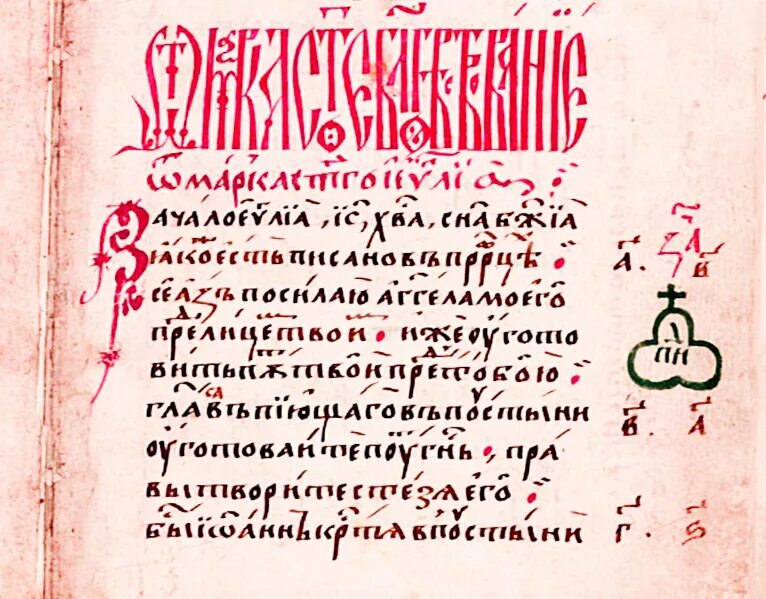 ѿ марка ст҃го еѵ҃лїа
Зачало еѵ҃лїа, їс҃, хв҃а, сн҃а бж҃їа
ꙗкоже есть писано въ прⷪ҇рцѣ
се азъ посилаю агг҃ела моего
преⷣ лицеⷨ твоиⷨ · иже оуготѡ
вить пѫть твои преⷣ тобою
гла҃съ въпїющаго въ пꙋстыни
оуготоваите пѫть гн҃ь, пра
вы творите стезѧ его
бы҃ їѡаннъ крⷭ҇тѧ в пꙋстыни
а҃. за҃ в҃
в҃. а҃
г҃. ѕ҃